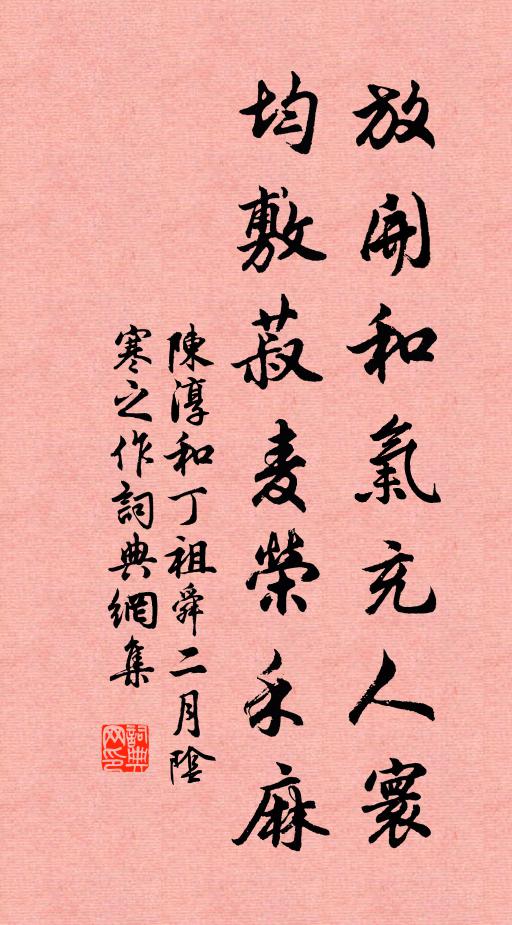 放開和氣充人寰
均敷菽麦榮禾麻
陳淳和丁祖舜二月陰
寒之作詞典網集
詞典网印